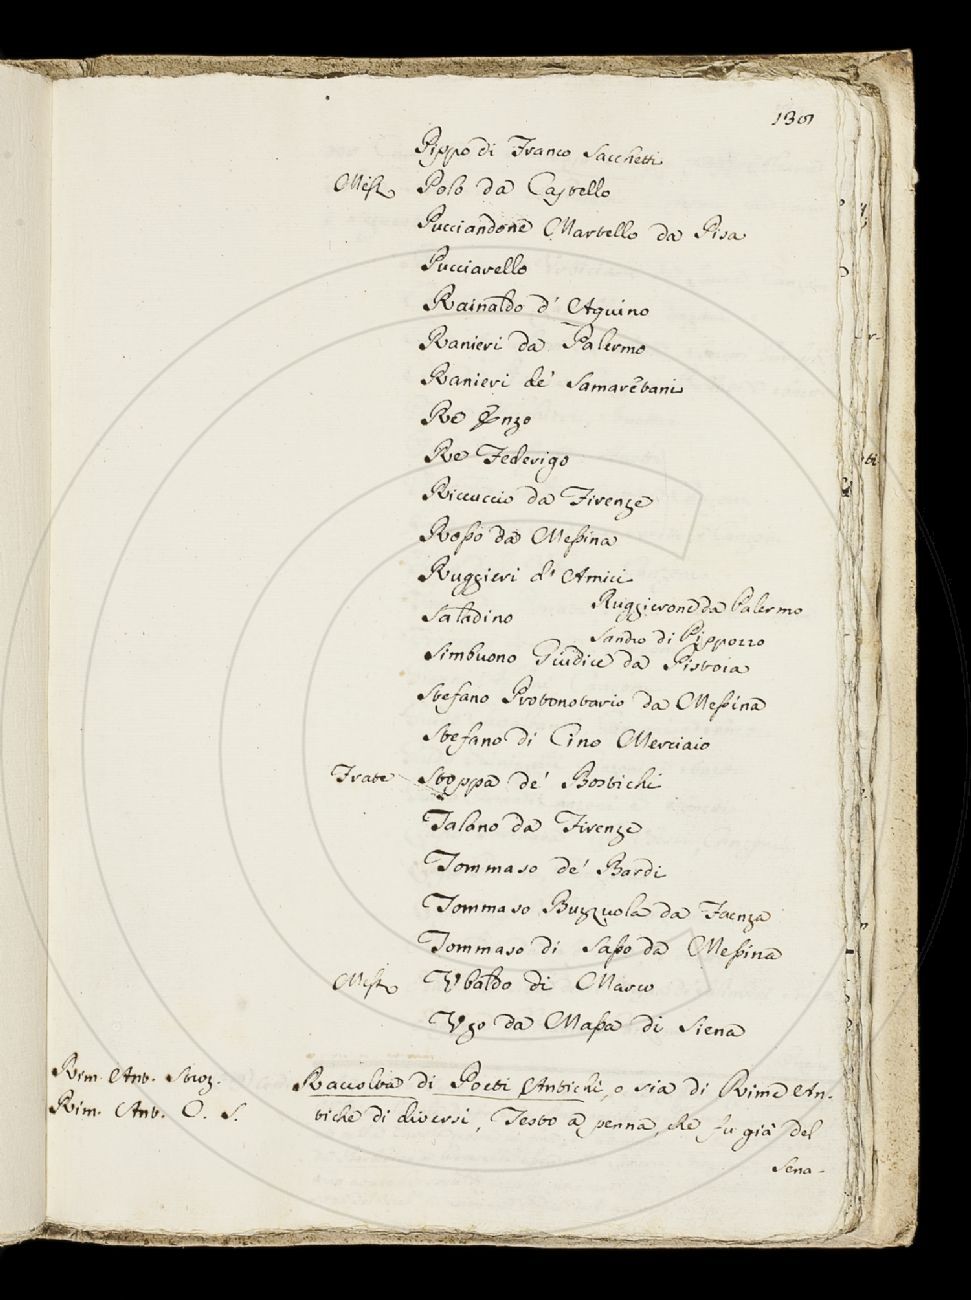 Pippo di Franco Sacchetti
Mess. Polo da Castello
Pucciandone Martello da Pisa
Pucciarello
Rainaldo d' Aquino
Ranieri da Palermo
Ranieri de' Samaretani
Re Enzo
Re Federigo
Riccuccio da Firenze
Rosso da Messina
Ruggieri d' Amici
Ruggierone da Palermo
Saladino
Sandro di Pippozzo
Simbuono Giudice da Pistoia
Stefano Protonotario da Messina
Stefano di Cino Merciaio
Frate Stoppa de' Bostichi
Talano da Firenze
Tommaso de' Bardi
Tommaso Buzzuola da Faenza
Tommaso di Sasso da Messina
Mess. Ubaldo di Marco
Ugo da Massa di Siena
Rim. Ant. Stroz.
Rim. Ant. O. S.
Raccolta di Poeti Antichi, o sia di Rime An-
tiche di diversi, Testo a penna, che fu già del
Sena-